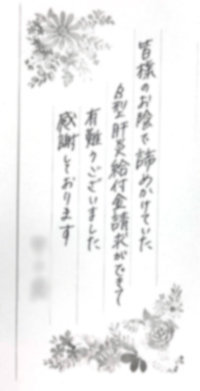 皆様のお陰で諦めかけていた
B型肝炎給付金請求ができて
有難うございました
感謝しております